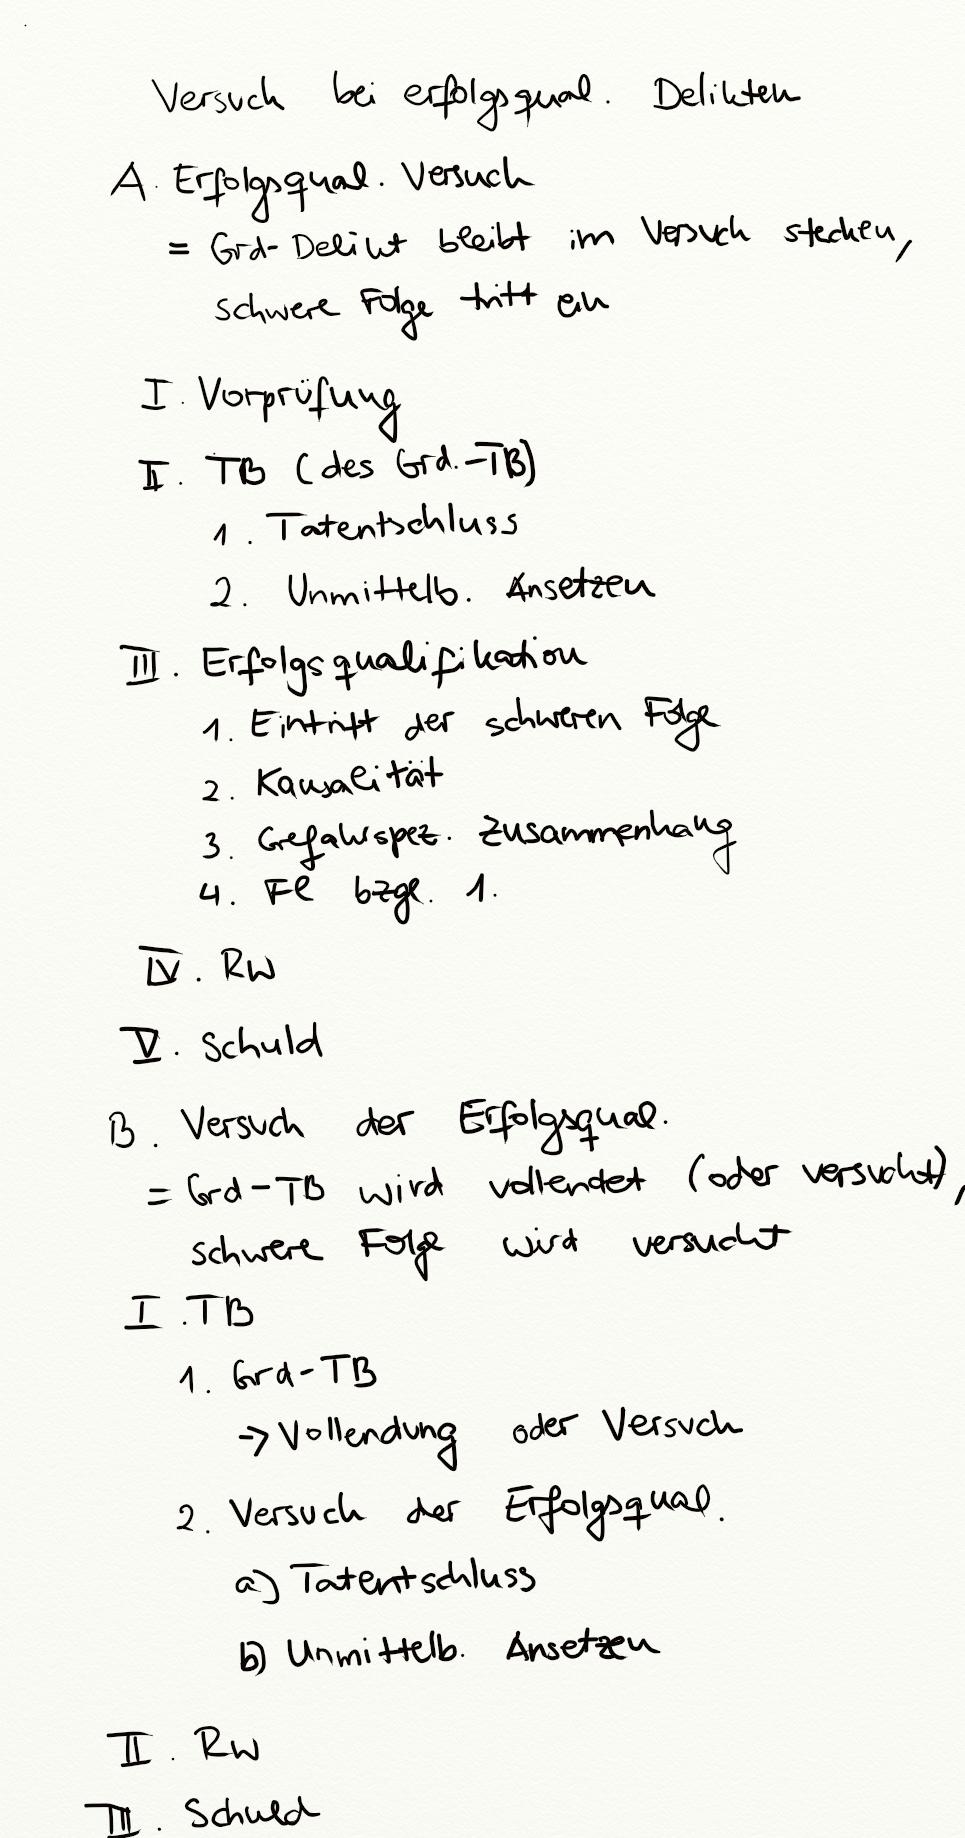 Versuch bei erfolgsqual. Delikten
A. Erfolgsqual. Versuch
= Grd-Delikt bleibt im Versuch stecken,
schwere Folge tritt ein
I. Vorprüfung
II. TB (des Grd.-TB)
1. Tatentschluss
2. Unmittelb. Ansetzen
III. Erfolgsqualifikation
1. Eintritt der schweren Folge
2. Kausalität
3. Gefahrspez. Zusammenhang
4. Fl bzgl. 1.
IV. RW
V. Schuld
B. Versuch der Erfolgsqual.
= Grd-TB wird vollendet (oder versucht),
schwere Folge wird versucht
I. TB
1. Grd-TB
→ Vollendung oder Versuch
2. Versuch der Erfolgsqual.
a) Tatentschluss
b) Unmittelb. Ansetzen
II. RW
III. Schuld